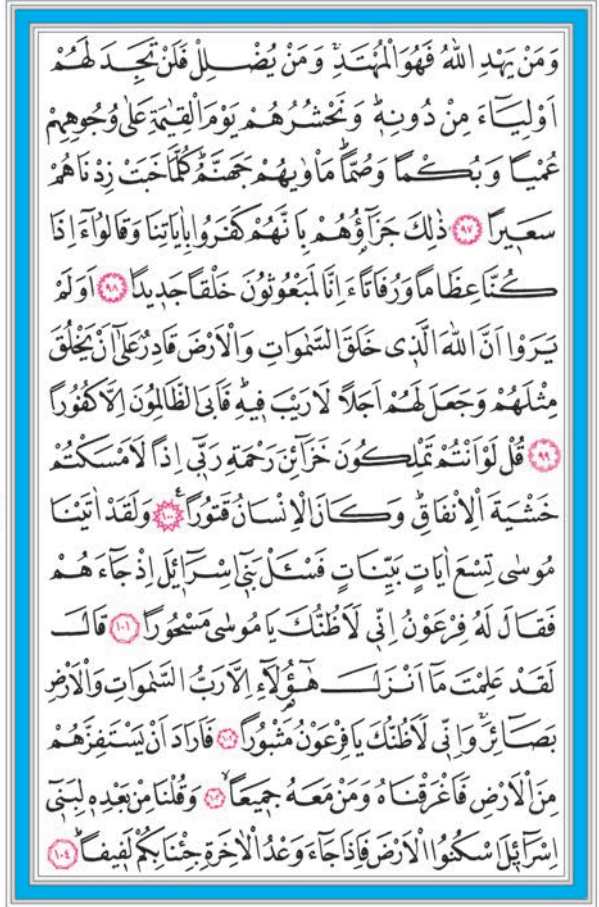 وَمَنْ يَهْدِ اللّٰهُ فَهُوَ الْمُهْتَدِۚ وَمَنْ يُضْلِلْ فَلَنْ تَجِدَ لَهُمْ
اَوْلِيَٓاءَ مِنْ دُونِه۪ۜ وَنَحْشُرُهُمْ يَوْمَ الْقِيٰمَةِ عَلٰى وُجُوهِهِمْ
عُمْيًا وَبُكْمًا وَصُمًّاۜ مَأْوٰيهُمْ جَهَنَّمُۜ كُلَّمَا خَبَتْ زِدْنَاهُمْ
سَع۪يرًا ﴿٩٧﴾ ذٰلِكَ جَزَٓاؤُ۬هُمْ بِاَنَّهُمْ كَفَرُوا بِاٰيَاتِنَا وَقَالُٓوا ءَاِذَا
كُنَّا عِظَامًا وَرُفَاتًا ءَاِنَّا لَمَبْعُوثُونَ خَلْقًا جَد۪يدًا ﴿٩٨﴾ اَوَلَمْ
يَرَوْا اَنَّ اللّٰهَ الَّذ۪ي خَلَقَ السَّمٰوَاتِ وَالْاَرْضَ قَادِرٌ عَلٰٓى اَنْ يَخْلُقَ
مِثْلَهُمْ وَجَعَلَ لَهُمْ اَجَلًا لَا رَيْبَ ف۪يهِۜ فَاَبَى الظَّالِمُونَ اِلَّا كُفُورًا
﴿٩٩﴾ قُلْ لَوْ اَنْتُمْ تَمْلِكُونَ خَزَٓائِنَ رَحْمَةِ رَبّ۪ٓي اِذًا لَاَمْسَكْتُمْ
خَشْيَةَ الْاِنْفَاقِۜ وَكَانَ الْاِنْسَانُ قَتُورًا۟ ﴿١٠٠﴾ وَلَقَدْ اٰتَيْنَا
مُوسٰى تِسْعَ اٰيَاتٍ بَيِّنَاتٍ فَسْـَٔلْ بَن۪ٓي اِسْرَٓائ۪لَ اِذْ جَٓاءَهُمْ
فَقَالَ لَهُ فِرْعَوْنُ اِنّ۪ي لَاَظُنُّكَ يَا مُوسٰى مَسْحُورًا ﴿١٠١﴾ قَالَ
لَقَدْ عَلِمْتَ مَٓا اَنْزَلَ هٰٓؤُ۬لَٓاءِ اِلَّا رَبُّ السَّمٰوَاتِ وَالْاَرْضِ
بَصَٓائِرَۚ وَاِنّ۪ي لَاَظُنُّكَ يَا فِرْعَوْنُ مَثْبُورًا ﴿١٠٢﴾ فَاَرَادَ اَنْ يَسْتَفِزَّهُمْ
مِنَ الْاَرْضِ فَاَغْرَقْنَاهُ وَمَنْ مَعَهُ جَم۪يعًاۙ ﴿١٠٣﴾ وَقُلْنَا مِنْ بَعْدِه۪ لِبَن۪ٓي
اِسْرَٓائ۪لَ اسْكُنُوا الْاَرْضَ فَاِذَا جَٓاءَ وَعْدُ الْاٰخِرَةِ جِئْنَا بِكُمْ لَف۪يفًاۜ ﴿١٠٤﴾